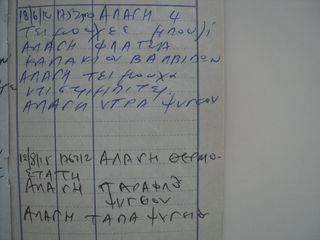 18/6/14 175390 ΑΛΑΓΗ 4
ΤΣΙΜΟΥΧΕΣ ΜΠΟΥΖΙ
ΑΛΑΓΗ ΦΛΑΤΖΑ
ΚΑΠΑΚΙΟΥ ΒΑΛΒΙΔΩΝ
ΑΛΑΓΗ ΤΣΙΜΟΥΧΑ
ΑΛΑΓΗ ΝΤΡΑ ΨΥΓΕΙΟΥ
12/8/15 176712 ΑΛΑΓΗ ΘΕΡΜΟ-
ΣΤΑΤΗ
ΑΛΑΓΗ ΠΑΡΑΦΛΟΥ
ΨΥΓΕΙΟΥ
ΑΛΑΓΗ ΤΑΠΑ ΨΥΓΕΙΟΥ